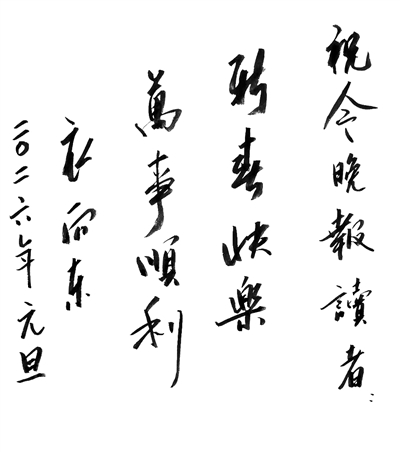 祝今晚報讀者：
新春快樂
萬事順利
衣向东
二〇二六年元旦